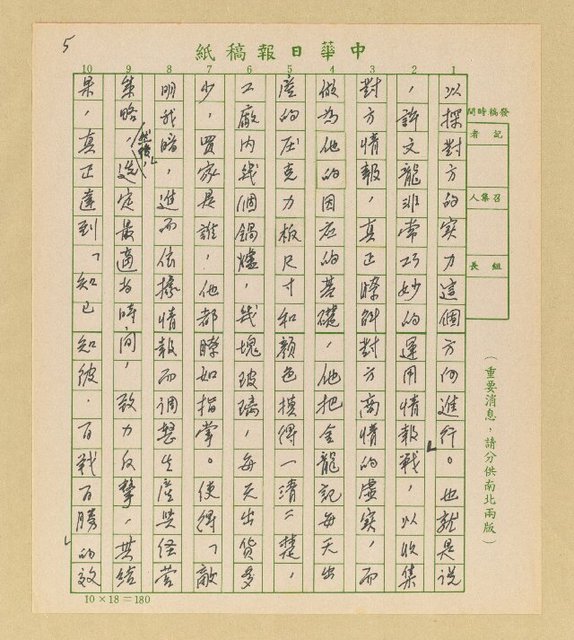 5
中華日報稿紙
發稿時間
記者
召集人
組長
(重要消息,請分供南北兩版)
1 2 3 4 5 6 7 8 9 10
以探對方的實力這個方向進行。也就是說
,許文龍非常巧妙的運用情報戰,以收集
對方情報,真正瞭解對方商情的虛實,而
做為他的因應的基礎,他把金龍記每天出
產的压克力板尺寸和顏色摸得一清二楚,
工廠內幾個鍋爐,幾塊玻璃,每天出貨多
少,買家是誰,他都瞭如指掌。使得「敵
明我暗,進而依據情報而調整生產與經營
策略,然後,選定最適當時間,致力反擊,其結
果,真正達到「知己知彼.百戰百勝」的效
10×18=180